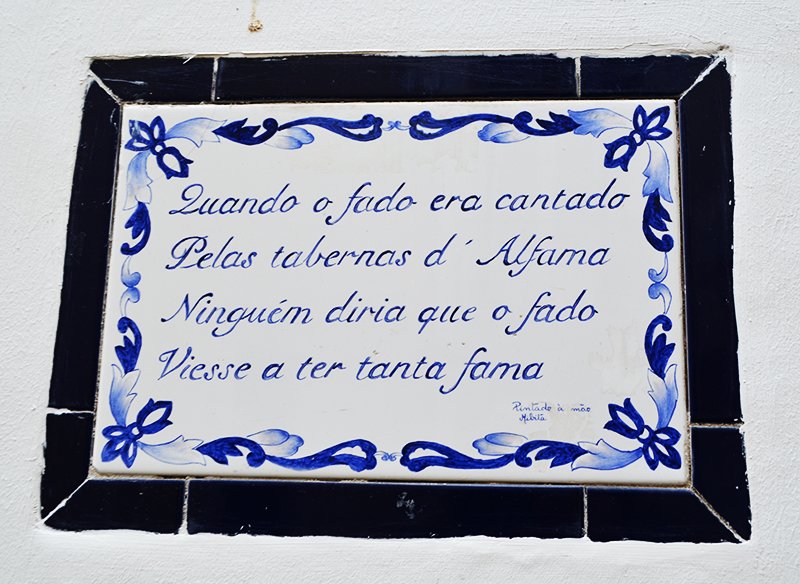 Quando o fado era cantado
Pelas tabernas d´ Alfama
Ninguém diria que o fado
Viesse a ter tanta fama
Pintado à mão